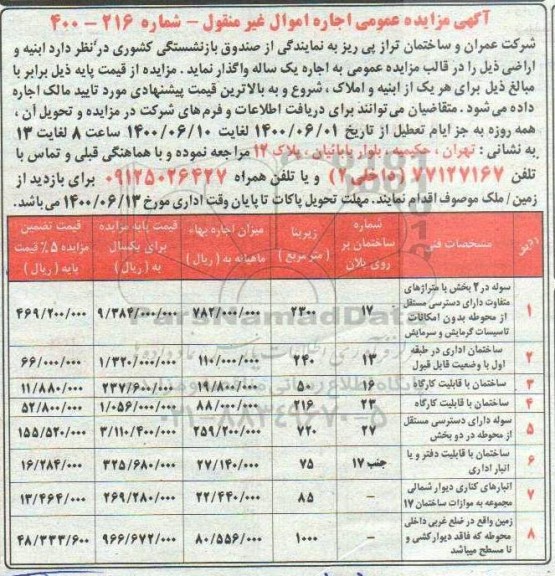 آگهی مزایده عمومی اجاره اموال غیر منقول - شماره ۲۱۶ - ۴۰۰
شرکت عمران و ساختمان تراز پی ریز به نمایندگی از صندوق بازنشستگی کشوری در نظر دارد ابنیه و
اراضی ذیل را در قالب مزایده عمومی به اجاره یک ساله واگذار نماید . مزایده از قیمت پایه ذیل برابر با
مبالغ ذیل برای هر یک از ابنیه و املاک ، شروع و به بالاترین قیمت پیشنهادی مورد تایید مالک اجاره
داده می شود . متقاضیان می توانند برای دریافت اطلاعات و فرم های شرکت در مزایده و تحویل آن ،
همه روزه به جز ایام تعطیل از تاریخ ۱۴۰۰/۰۶/۰۱ لغایت ۱۴۰۰/۰۶/۱۰ ساعت ۸ لغایت ۱۳
به نشانی : تهران ، حکیمیه ، بلوار بابائیان ، پلاک ۱۲ مراجعه نموده و با هماهنگی قبلی و تماس با
تلفن ۷۷۱۲۷۱۶۷ (داخلی ۲) و یا تلفن همراه ۰۹۱۲۵۰۲۶۴۲۷ برای بازدید از
زمین/ ملک موصوف اقدام نمایند. مهلت تحویل پاکات تا پایان وقت اداری مورخ ۱۴۰۰/۰۶/۱۳ می باشد.
ردیف مشخصات فنی شماره ساختمان بر روی پلان زیربنا ( متر مربع ) میزان اجاره بهاء ماهیانه به ( ریال ) قیمت پایه مزایده برای یکسال به ( ریال ) قیمت تضمین مزایده ۵٪ قیمت پایه ( ریال )
۱ سوله در ۲ بخش با متراژهای متفاوت دارای دسترسی مستقل از محوطه بدون امکانات تاسیسات گرمایش و سرمایش ۱۷ ۲۳۰۰ ۷۸۲/۰۰۰/۰۰۰ ۹/۳۸۴/۰۰۰/۰۰۰ ۴۶۹/۲۰۰/۰۰۰
۲ ساختمان اداری در طبقه اول با وضعیت قابل قبول ۱۳ ۲۴۰ ۱۱۰/۰۰۰/۰۰۰ ۱/۳۲۰/۰۰۰/۰۰۰ ۶۶/۰۰۰/۰۰۰
۳ ساختمان با قابلیت کارگاه ۱۶ ۵۰ ۱۹/۸۰۰/۰۰۰ ۲۳۷/۶۰۰/۰۰۰ ۱۱/۸۸۰/۰۰۰
۴ ساختمان با قابلیت کارگاه ۲۳ ۲۱۶ ۸۸/۰۰۰/۰۰۰ ۱/۰۵۶/۰۰۰/۰۰۰ ۵۲/۸۰۰/۰۰۰
۵ سوله دارای دسترسی مستقل از محوطه در دو بخش ۲۷ ۷۲۰ ۲۵۹/۲۰۰/۰۰۰ ۳/۱۱۰/۴۰۰/۰۰۰ ۱۵۵/۵۲۰/۰۰۰
۶ ساختمان با قابلیت دفتر و یا انبار اداری جنب ۱۷ ۷۵ ۲۷/۱۴۰/۰۰۰ ۳۲۵/۶۸۰/۰۰۰ ۱۶/۲۸۴/۰۰۰
۷ انبارهای کناری دیوار شمالی مجموعه به موازات ساختمان ۱۷ - ۸۵ ۲۲/۴۴۰/۰۰۰ ۲۶۹/۲۸۰/۰۰۰ ۱۳/۴۶۴/۰۰۰
۸ زمین واقع در ضلع غربی داخلی محوطه که فاقد دیوار کشی و تا مسطح میباشد - ۱۰۰۰ ۸۰/۵۵۶/۰۰۰ ۹۶۶/۶۷۲/۰۰۰ ۴۸/۳۳۳/۶۰۰